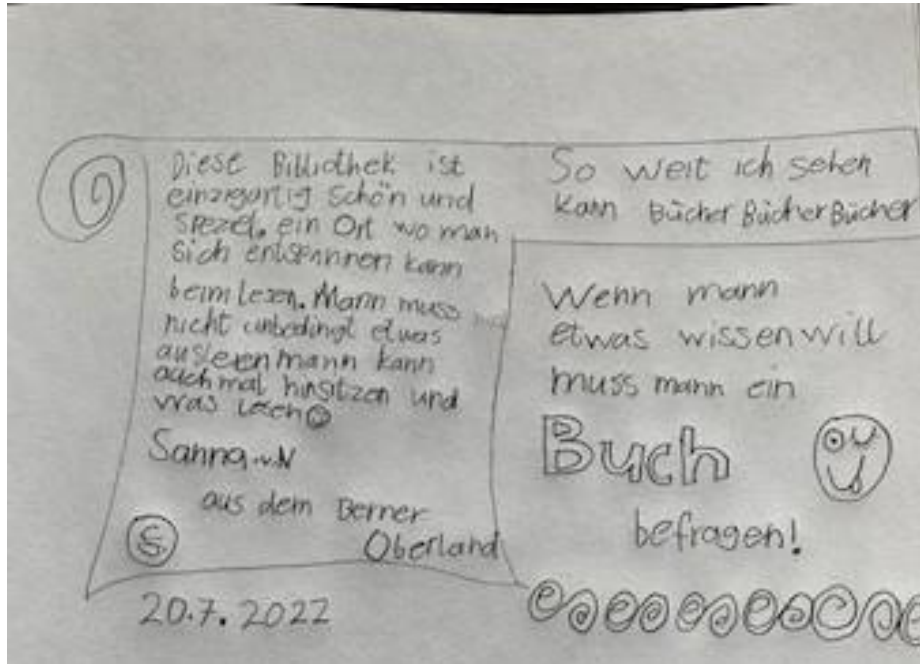 Diese Bibliothek ist
einziegartig schön und
spezel. ein Ort wo man
sich entspannen kann
beim lesen. Mann muss
nicht unbedingt etwas
ausleren mann kann
auch mal hinsitzen und
was lesen
Sanna v. N
aus dem Berner
Oberland
S.
20.7.2022
So weit ich sehen
kann Bücher Bücher Bücher
Wenn mann
etwas wissen will
muss mann ein
Buch
befragen!